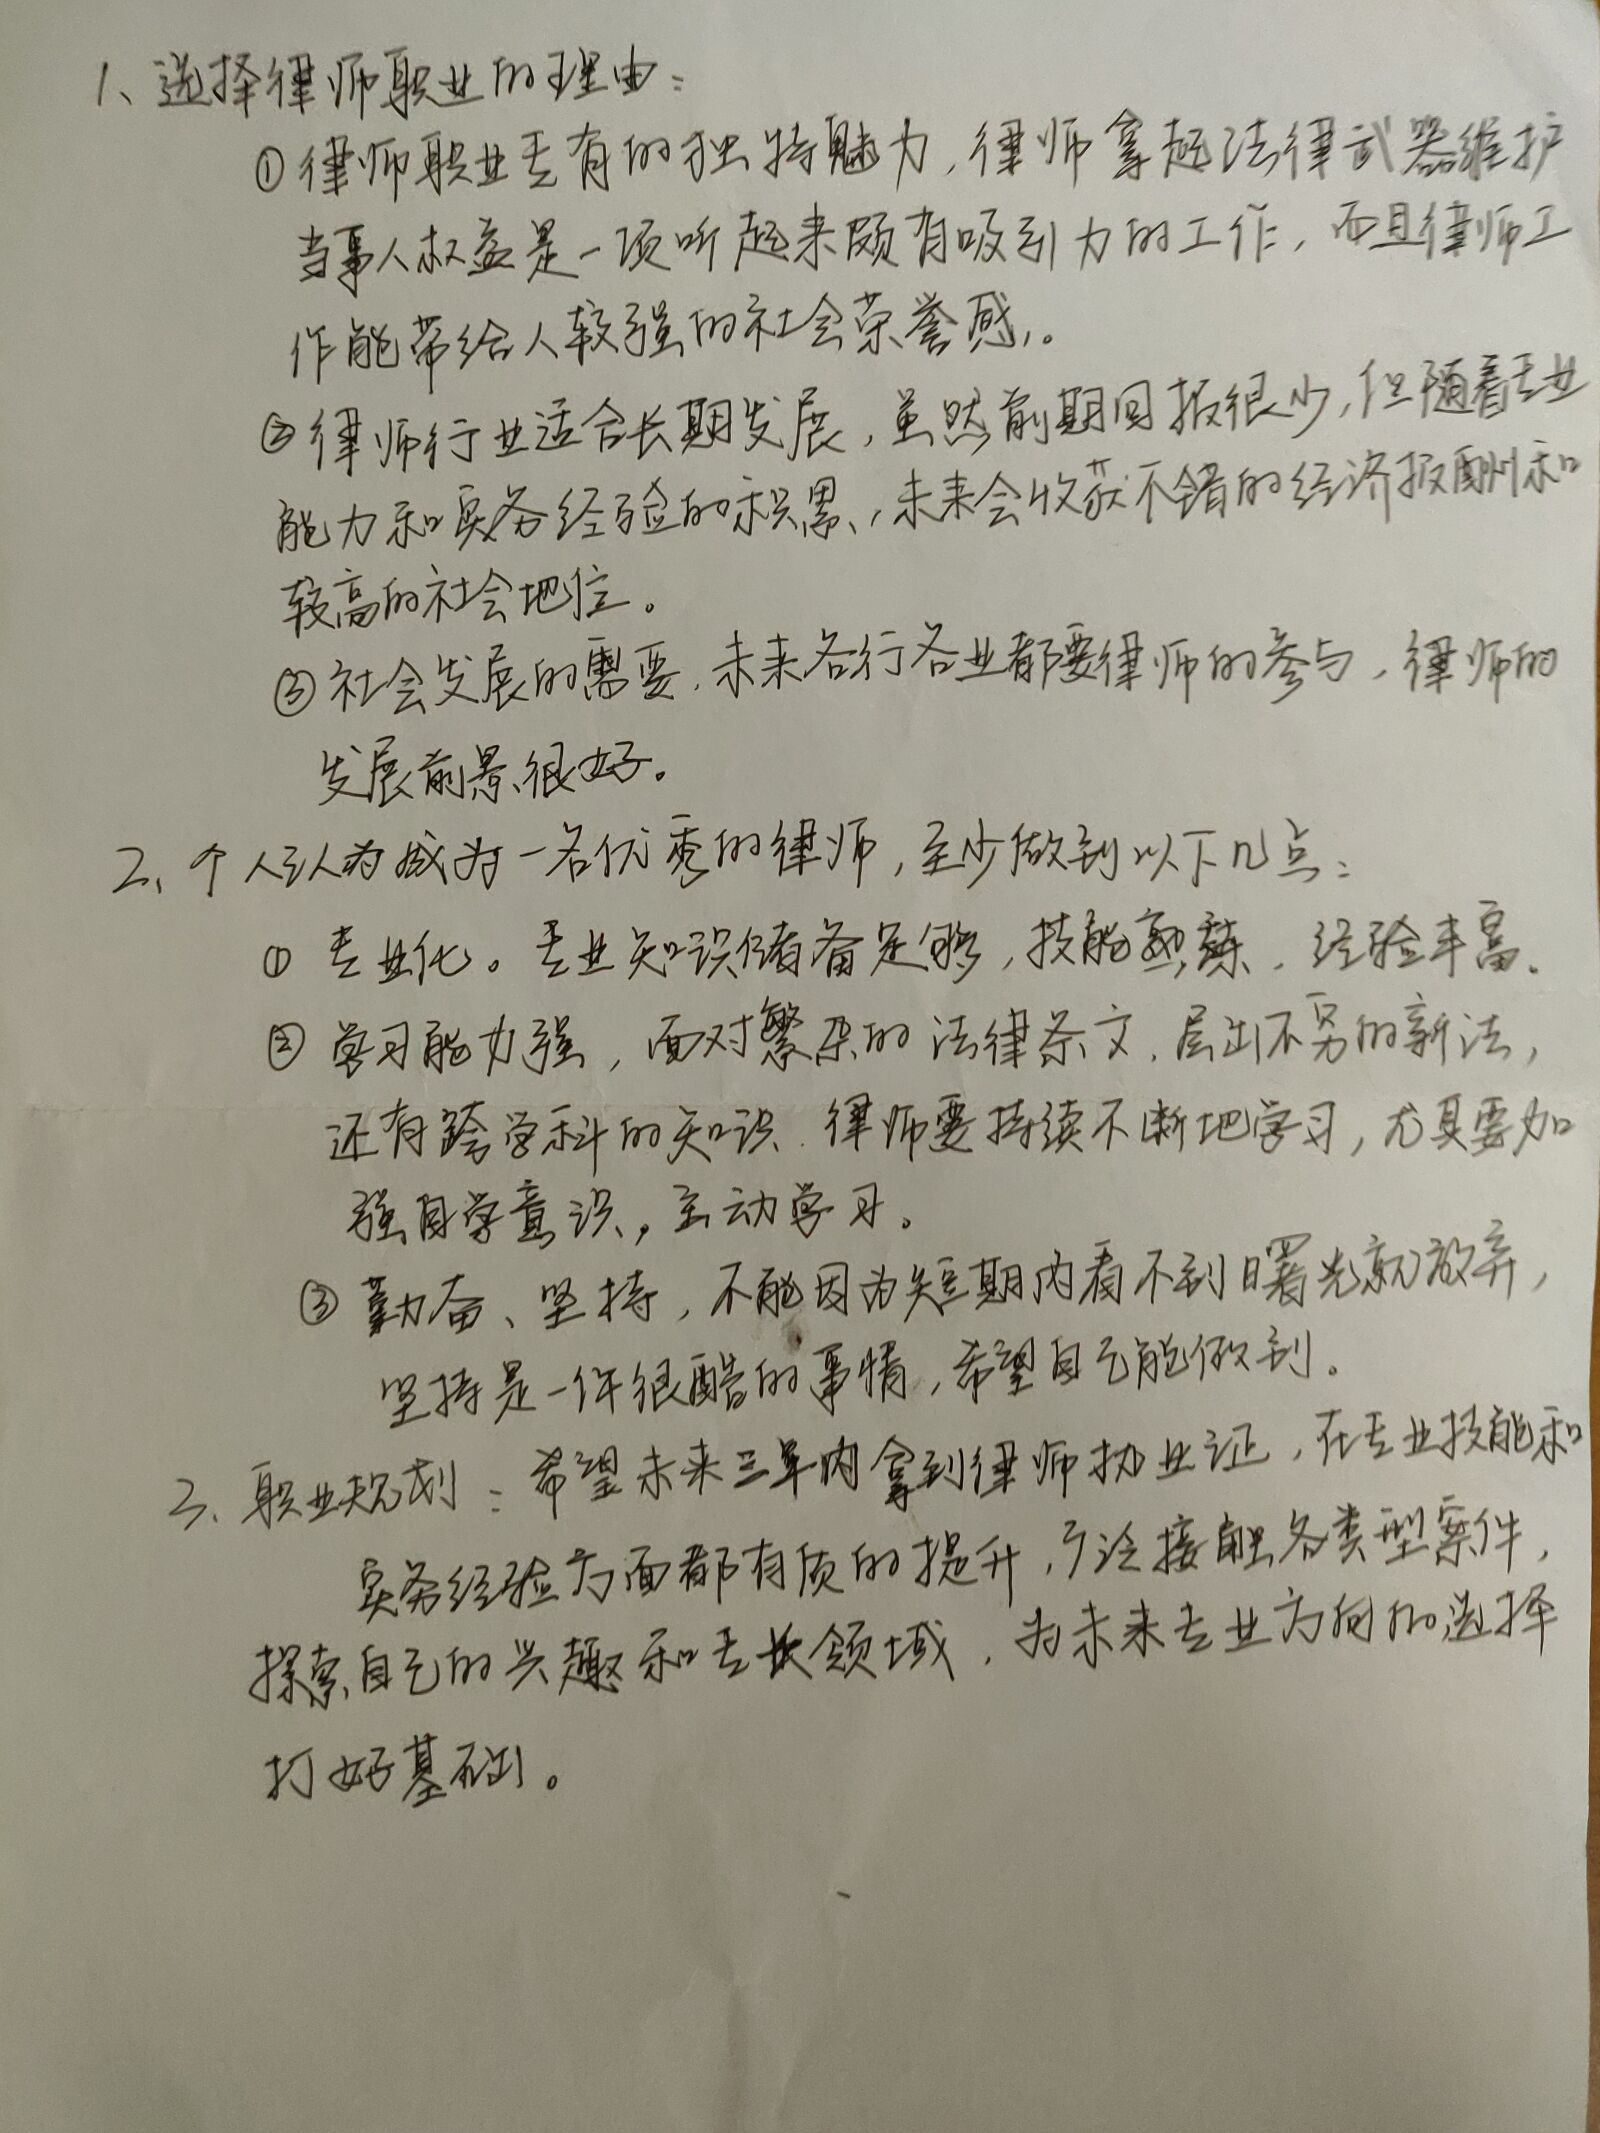 1、选择律师职业的理由：
①律师职业专有的独特魅力，律师拿起法律武器维护
当事人权益是一项听起来颇有吸引力的工作，而且律师工
作能带给人较强的社会荣誉感。
②律师行业适合长期发展，虽然前期回报很少，但随着专业
能力和实务经验的积累，未来会收获不错的经济报酬和
较高的社会地位。
③社会发展的需要，未来各行各业都要律师的参与，律师的
发展前景很好。
2、个人认为成为一名优秀的律师，至少做到以下几点：
①专业化。专业知识储备足够，技能熟练，经验丰富。
②学习能力强，面对繁杂的法律条文，层出不穷的新法，
还有跨学科的知识，律师要持续不断地学习，尤其要加
强自学意识，主动学习。
③勤奋、坚持，不能因为短期内看不到曙光就放弃，
坚持是一件很酷的事情，希望自己能做到。
3、职业规划：希望未来三年内拿到律师执业证，在专业技能和
实务经验方面都有质的提升，广泛接触各类型案件，
探索自己的兴趣和专长领域，为未来专业方向的选择
打好基础。